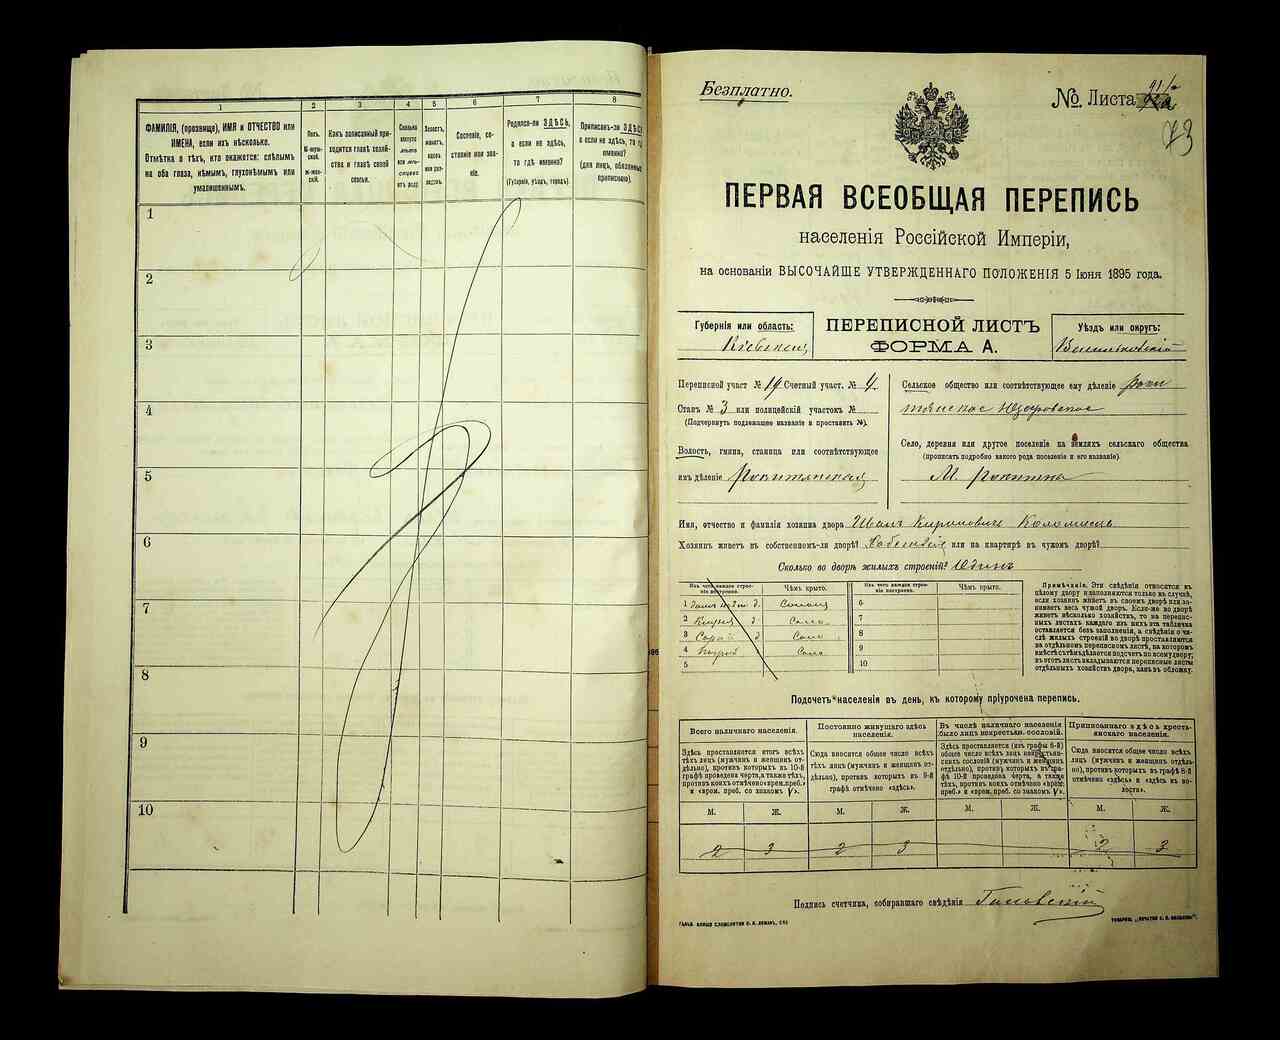 1
2
3
4
5
6
7
8
ФАМИЛІЯ, (прозвище), ИМЯ и ОТЧЕСТВО или
ИМЕНА, если ихъ нѣсколько.
Отмѣтка о тѣхъ, кто окажется: слѣпымъ
на оба глаза, нѣмымъ, глухонѣмымъ или
умалишеннымъ.
Полъ.
М-муж-
ской.
Ж-жен-
скій.
Какъ записанный при-
ходится главѣ хозяй-
ства и главѣ своей
семьи.
Сколько
минуло
лѣтъ
или мѣ-
сяцевъ
отъ роду.
Сословіе, со-
стояніе или зва-
ніе.
Родился-ли ЗДѢСЬ,
а если не здѣсь,
то гдѣ именно?
(Губернія, уѣздъ, городъ).
Приписанъ-ли ЗДѢСЬ
а если не здѣсь, то гдѣ
именно?
(для лицъ, обязанныхъ
припискою).
1
2
3
4
5
6
7
8
9
10
Безплатно.
№ Листа
73
ПЕРВАЯ ВСЕОБЩАЯ ПЕРЕПИСЬ
населенія Россійской Имперіи,
на основаніи ВЫСОЧАЙШЕ УТВЕРЖДЕННАГО ПОЛОЖЕНІЯ 5 Іюня 1895 года.
Губернія или область:
Кіевская
ПЕРЕПИСНОЙ ЛИСТЪ
ФОРМА А.
Уѣздъ или округъ:
Васильковскій
Переписной участ. № 19 Счетный участ. № 4.
Станъ № 3 или полицейскій участокъ №
(Подчеркнуть подлежащее названіе и проставить №).
Волость, гмина, станица или соотвѣтствующее
имъ дѣленіе Рокитянская
Сельское общество или соотвѣтствующее ему дѣленіе Роки
тянское
Село, деревня или другое поселеніе на земляхъ сельскаго общества
(прописать подробно какого рода поселеніе и его названіе).
М. Рокитна
Имя, отчество и фамилія хозяина двора Иванъ Кириловичъ Коломиецъ
Хозяинъ живетъ въ собственномъ-ли дворѣ? или на квартирѣ въ чужомъ дворѣ?
Сколько во дворѣ жилыхъ строеній? Одинъ
Изъ чего каждое строе-
ніе построено.
Чѣмъ крыто.
Изъ чего каждое строе-
ніе построено.
Чѣмъ крыто.
1 Солома
2 Соло
3 Сарай Соло
4 Соло
5
6
7
8
9
10
Примѣчаніе. Эти свѣдѣнія относятся къ
цѣлому двору и заполняются только въ случаѣ,
если хозяинъ живетъ въ своемъ дворѣ или за-
нимаетъ весь чужой дворъ. Если-же во дворѣ
живетъ нѣсколько хозяйствъ, то на перепис-
ныхъ листахъ каждаго изъ нихъ эта табличка
оставляется безъ заполненія, а свѣдѣнія о чи-
слѣ жилыхъ строеній во дворѣ проставляются
на отдѣльномъ переписномъ листѣ, на которомъ
вмѣстѣ съ тѣмъ дѣлается подсчетъ по всему двору;
въ этотъ листъ вкладываются переписные листы
отдѣльныхъ хозяйствъ двора, какъ въ обложку.
Подсчетъ населенія въ день, къ которому пріурочена перепись.
Всего наличнаго населенія.
Постоянно живущаго здѣсь
населенія.
Въ числѣ наличнаго населенія
было лицъ некрестьян. сословій.
Приписаннаго здѣсь кресть-
янскаго населенія.
Здѣсь проставляется итогъ всѣхъ
тѣхъ лицъ (мужчинъ и женщинъ от-
дѣльно), противъ которыхъ въ 10-й
графѣ проведена черта, а также тѣхъ,
противъ коихъ отмѣчено «врем. преб.»
и «врем. преб. со знакомъ V».
Сюда вносится общее число всѣхъ
тѣхъ лицъ (мужчинъ и женщинъ от-
дѣльно), противъ которыхъ въ 9-й
графѣ отмѣчено «здѣсь».
Здѣсь проставляется (изъ графы 6-й)
общее число всѣхъ лицъ некрестьян-
скихъ сословій (мужчинъ и женщинъ
отдѣльно), противъ которыхъ въ гра-
фѣ 10-й проведена черта, а также
тѣхъ, противъ коихъ отмѣчено «врем.
преб.» и «врем. преб. со знакомъ V».
Сюда вносится общее число всѣхъ
лицъ (мужчинъ и женщинъ отдѣль-
но), противъ которыхъ въ графѣ 8-й
отмѣчено «здѣсь» и «здѣсь въ во-
лости».
М. Ж. М. Ж. М. Ж. М. Ж.
2 3 2 3 2 3
Подпись счетчика, собиравшаго свѣдѣнія